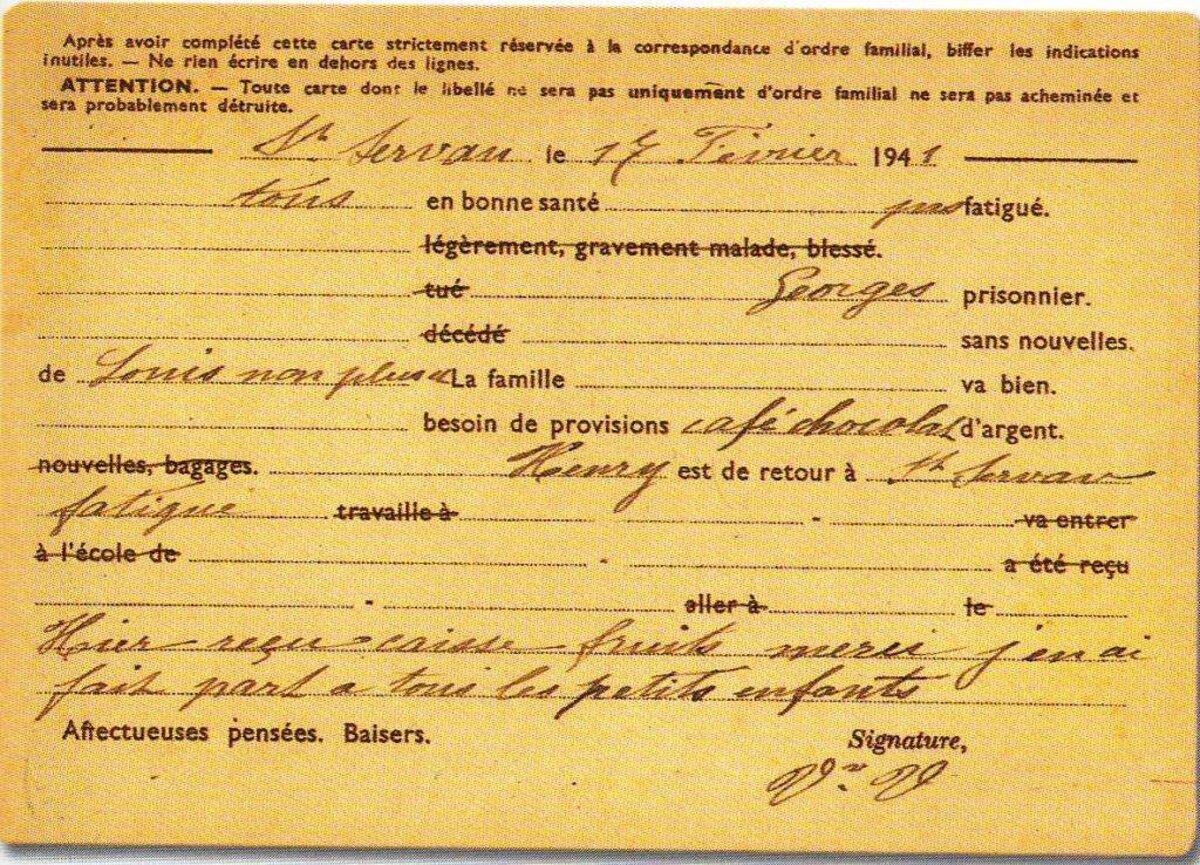 Après avoir complété cette carte strictement réservée à la correspondance d'ordre familial, biffer les indications
inutiles. — Ne rien écrire en dehors des lignes.
ATTENTION. — Toute carte dont le libellé ne sera pas uniquement d'ordre familial ne sera pas acheminée et
sera probablement détruite.
St Servan le 17 Février 1941
tous en bonne santé pas fatigué.
légèrement, gravement malade, blessé.
tué Georges prisonnier.
décédé sans nouvelles.
de Louis non plus La famille va bien.
besoin de provisions café chocolat d'argent.
nouvelles, bagages. Henry est de retour à St Servan
fatigue travaille à - va entrer
à l'école de - a été reçu
- aller à le
Hier reçu caisse fruits merci j'en ai
fait part a tous les petits enfants
Affectueuses pensées. Baisers. Signature,